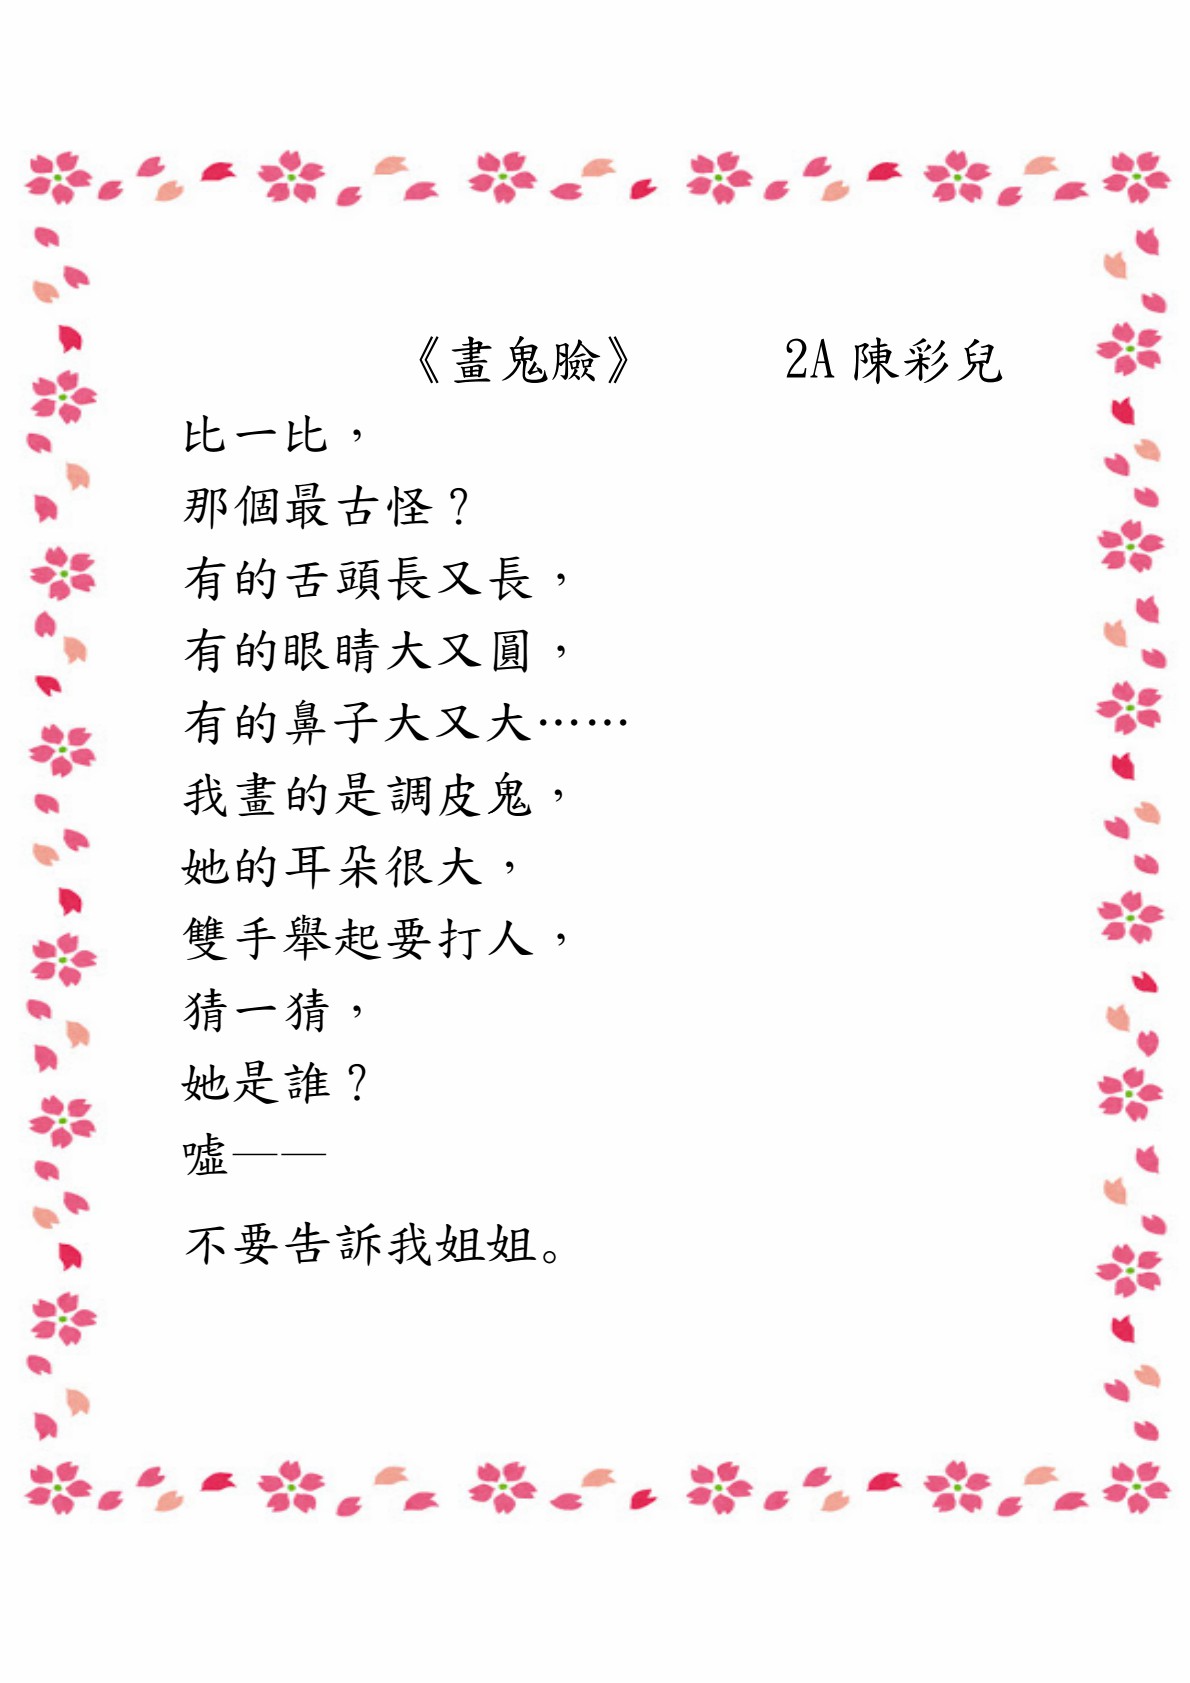 《畫鬼臉》 2A 陳彩兒
比一比，
那個最古怪？
有的舌頭長又長，
有的眼睛大又圓，
有的鼻子大又大……
我畫的是調皮鬼，
她的耳朵很大，
雙手舉起要打人，
猜一猜，
她是誰？
噓——
不要告訴我姐姐。